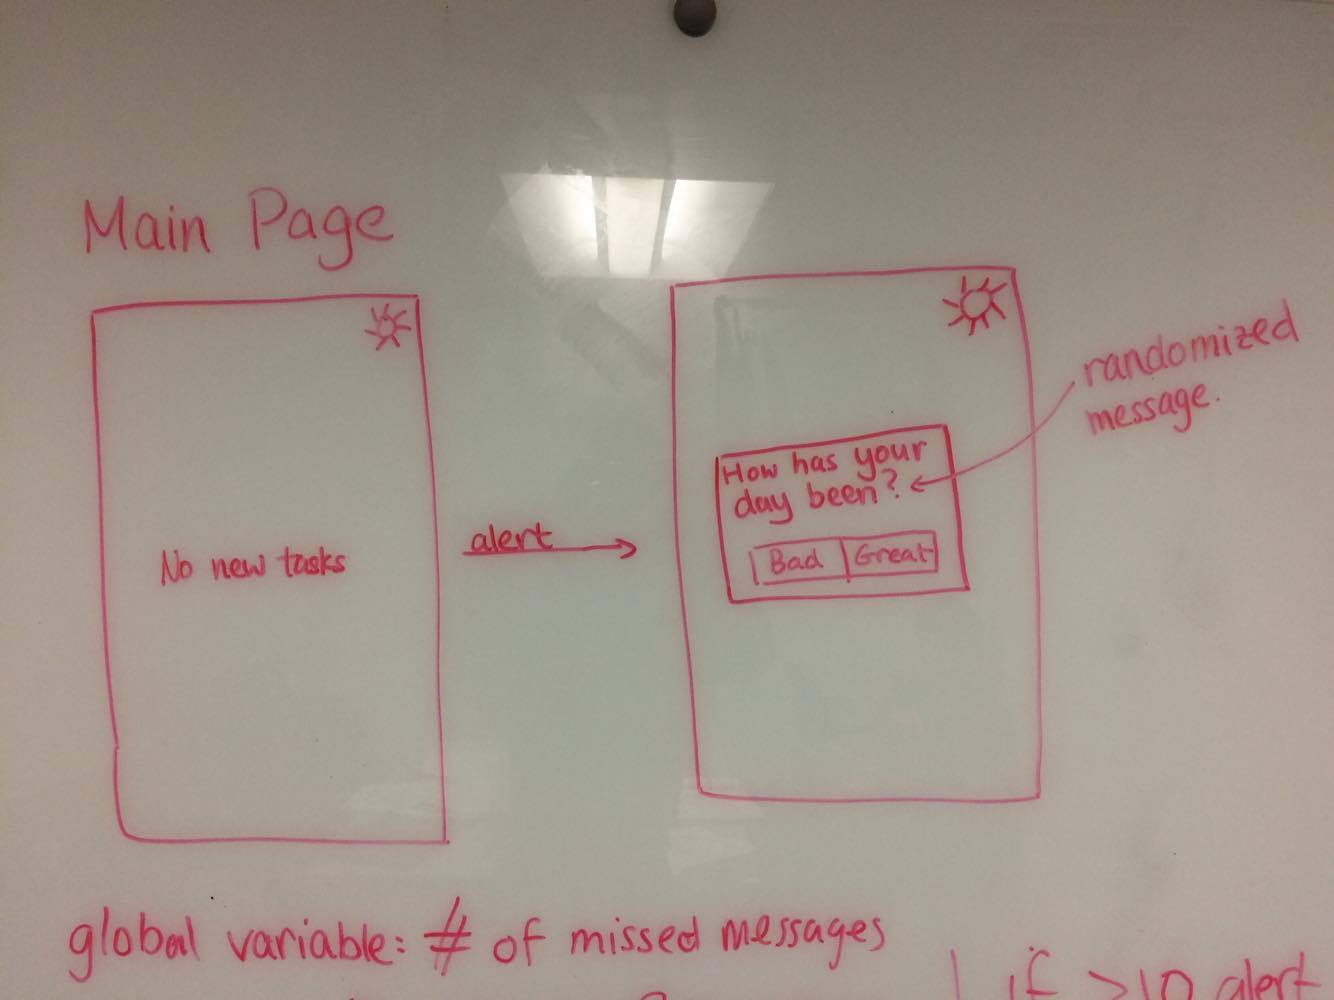 Main Page
No new tasks
alert
How has your
day been?
Bad
Great
randomized
message.
global variable: # of missed messages
if >10 alert